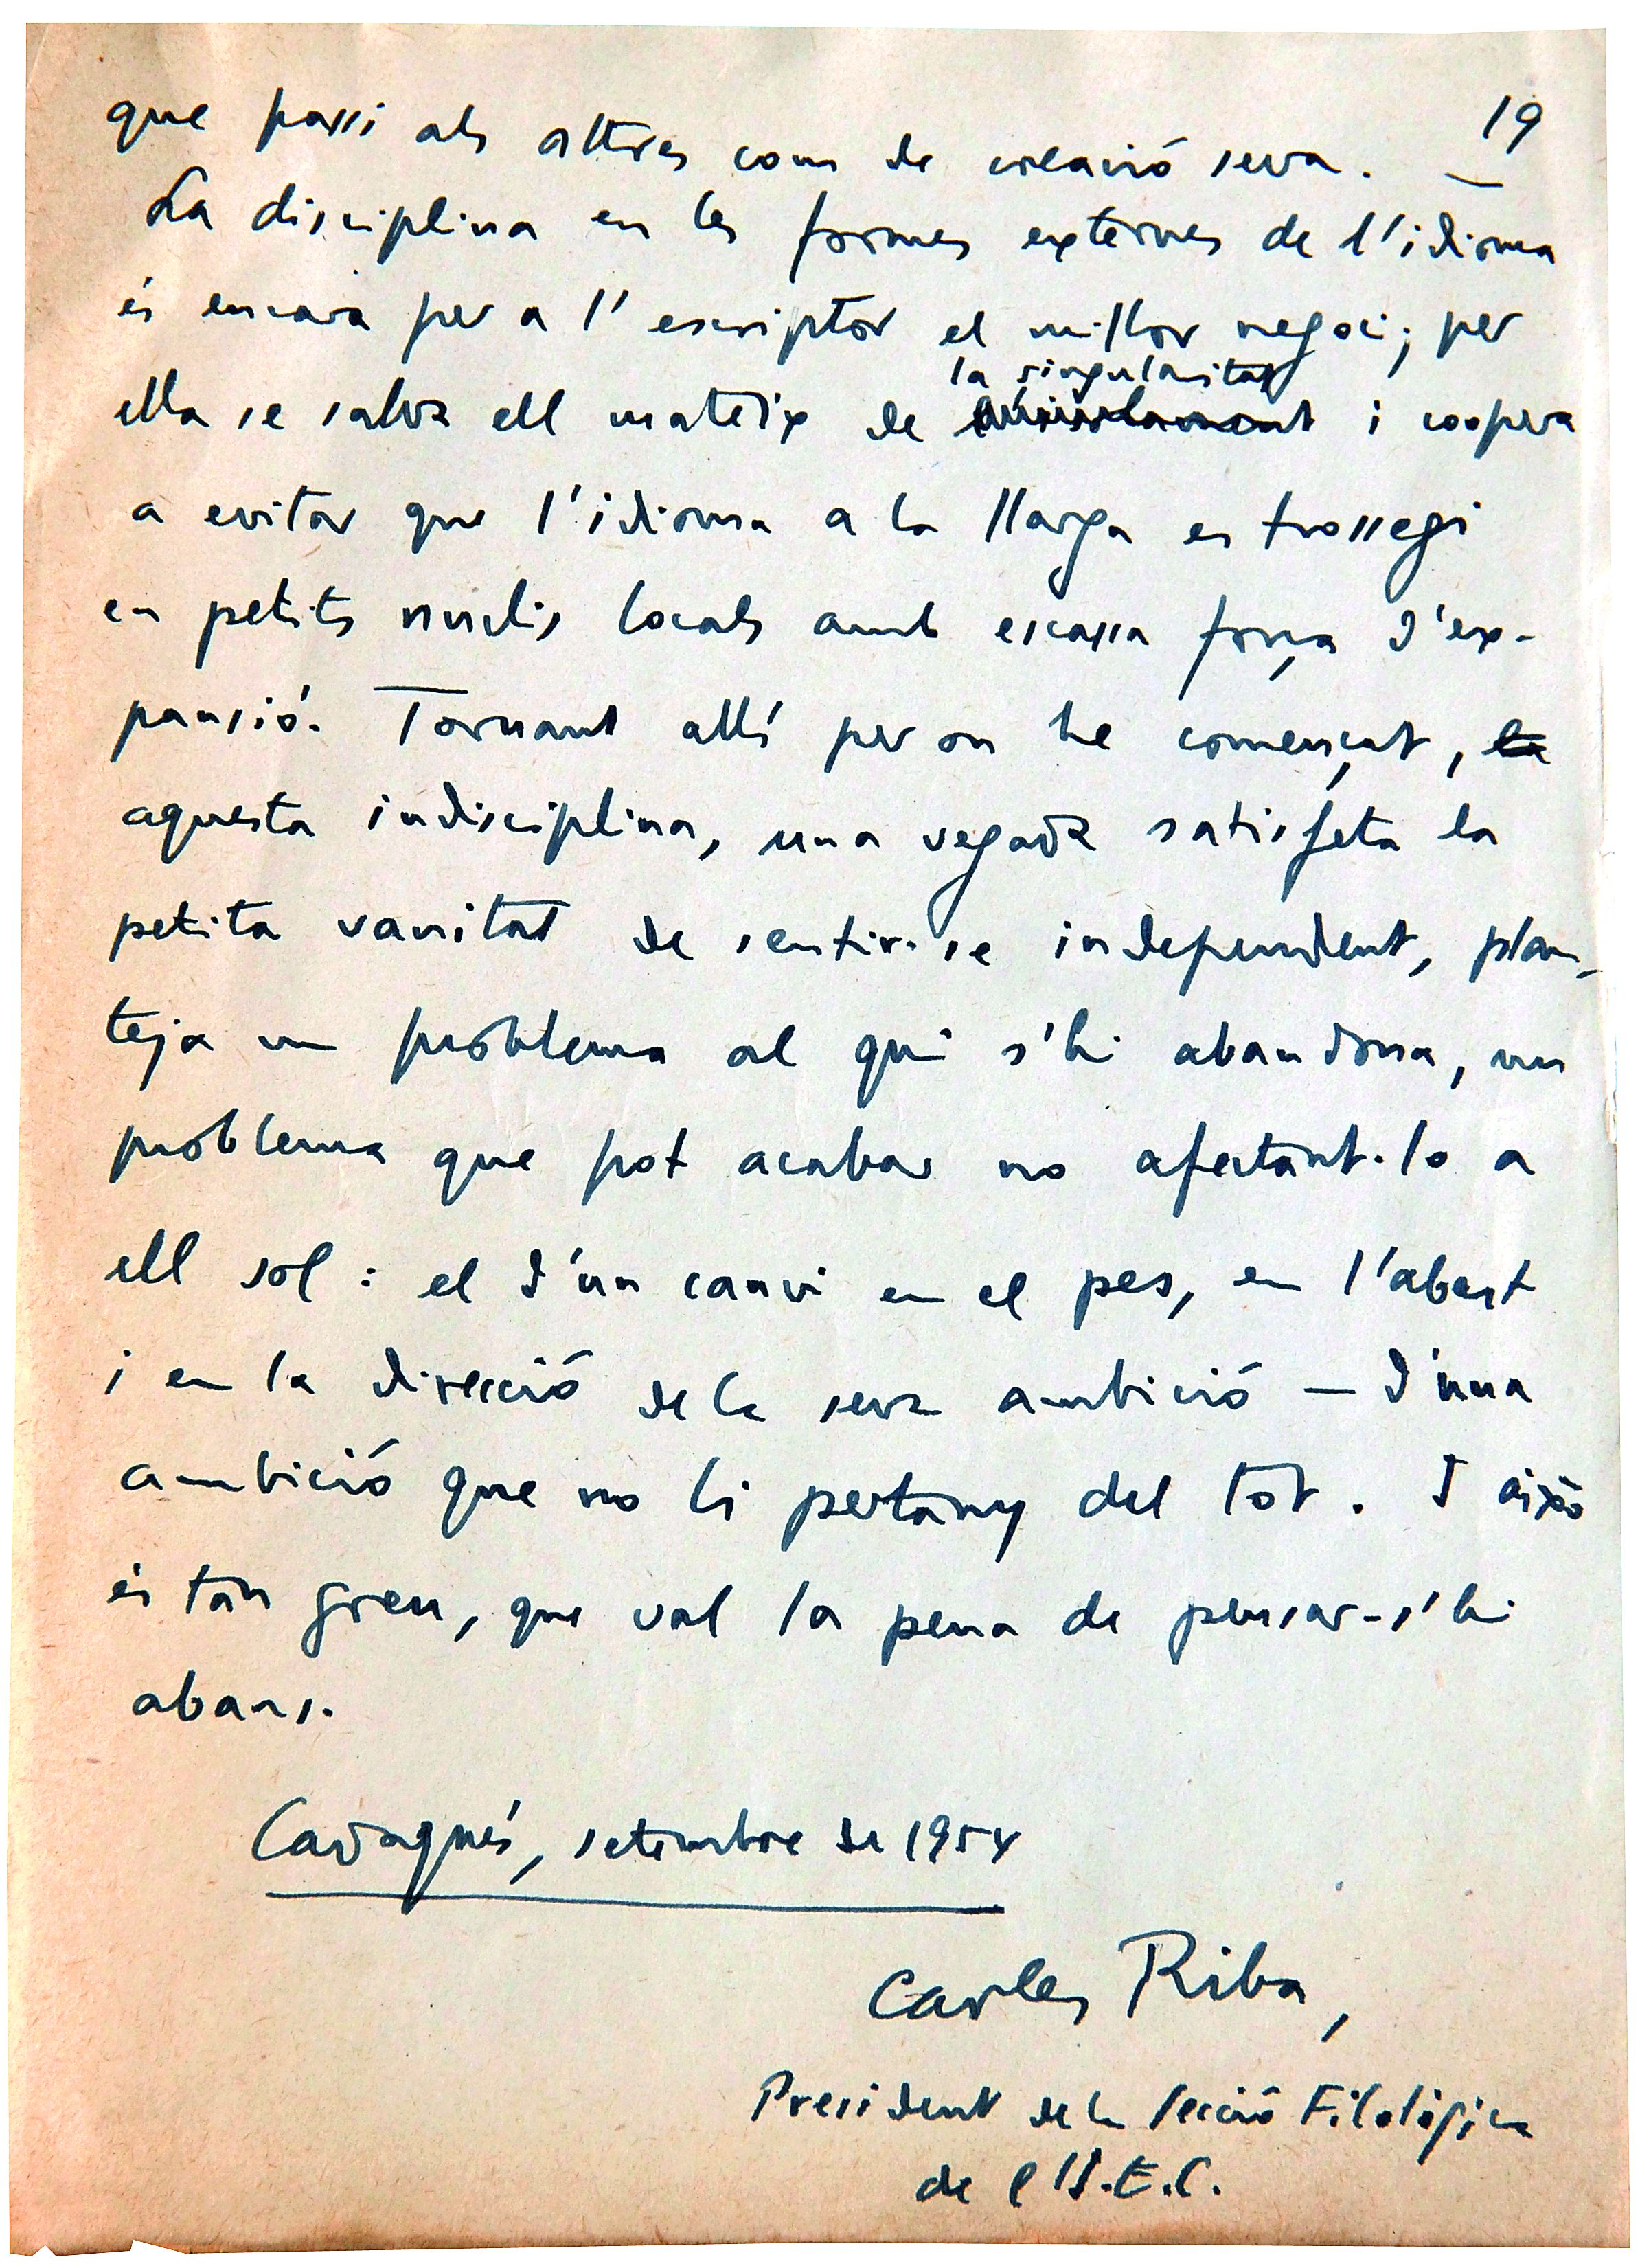 19
que passi als altres com de creació seva.
La disciplina en les formes externes de l'idioma
és encara per a l'escriptor el millor negoci; per
la singularitat
ella se salva ell mateix de i coopera
a evitar que l'idioma a la llarga es trossegi
en petits nuclis locals amb escassa força d'ex-
pansió. Tornant allí per on he començat, la
aquesta indisciplina, una vegada satisfeta la
petita vanitat de sentir-se independent, plan-
teja un problema al qui s'hi abandona, un
problema que pot acabar no afectant-lo a
ell sol: el d'un canvi en el pes, en l'abast
i en la direcció de la seva ambició — d'una
ambició que no li pertany del tot. I això
és tan greu, que val la pena de pensar-s'hi
abans.
Cadaqués, setembre de 1954
Carles Riba,
President de la Secció Filològica
de l'I.E.C.